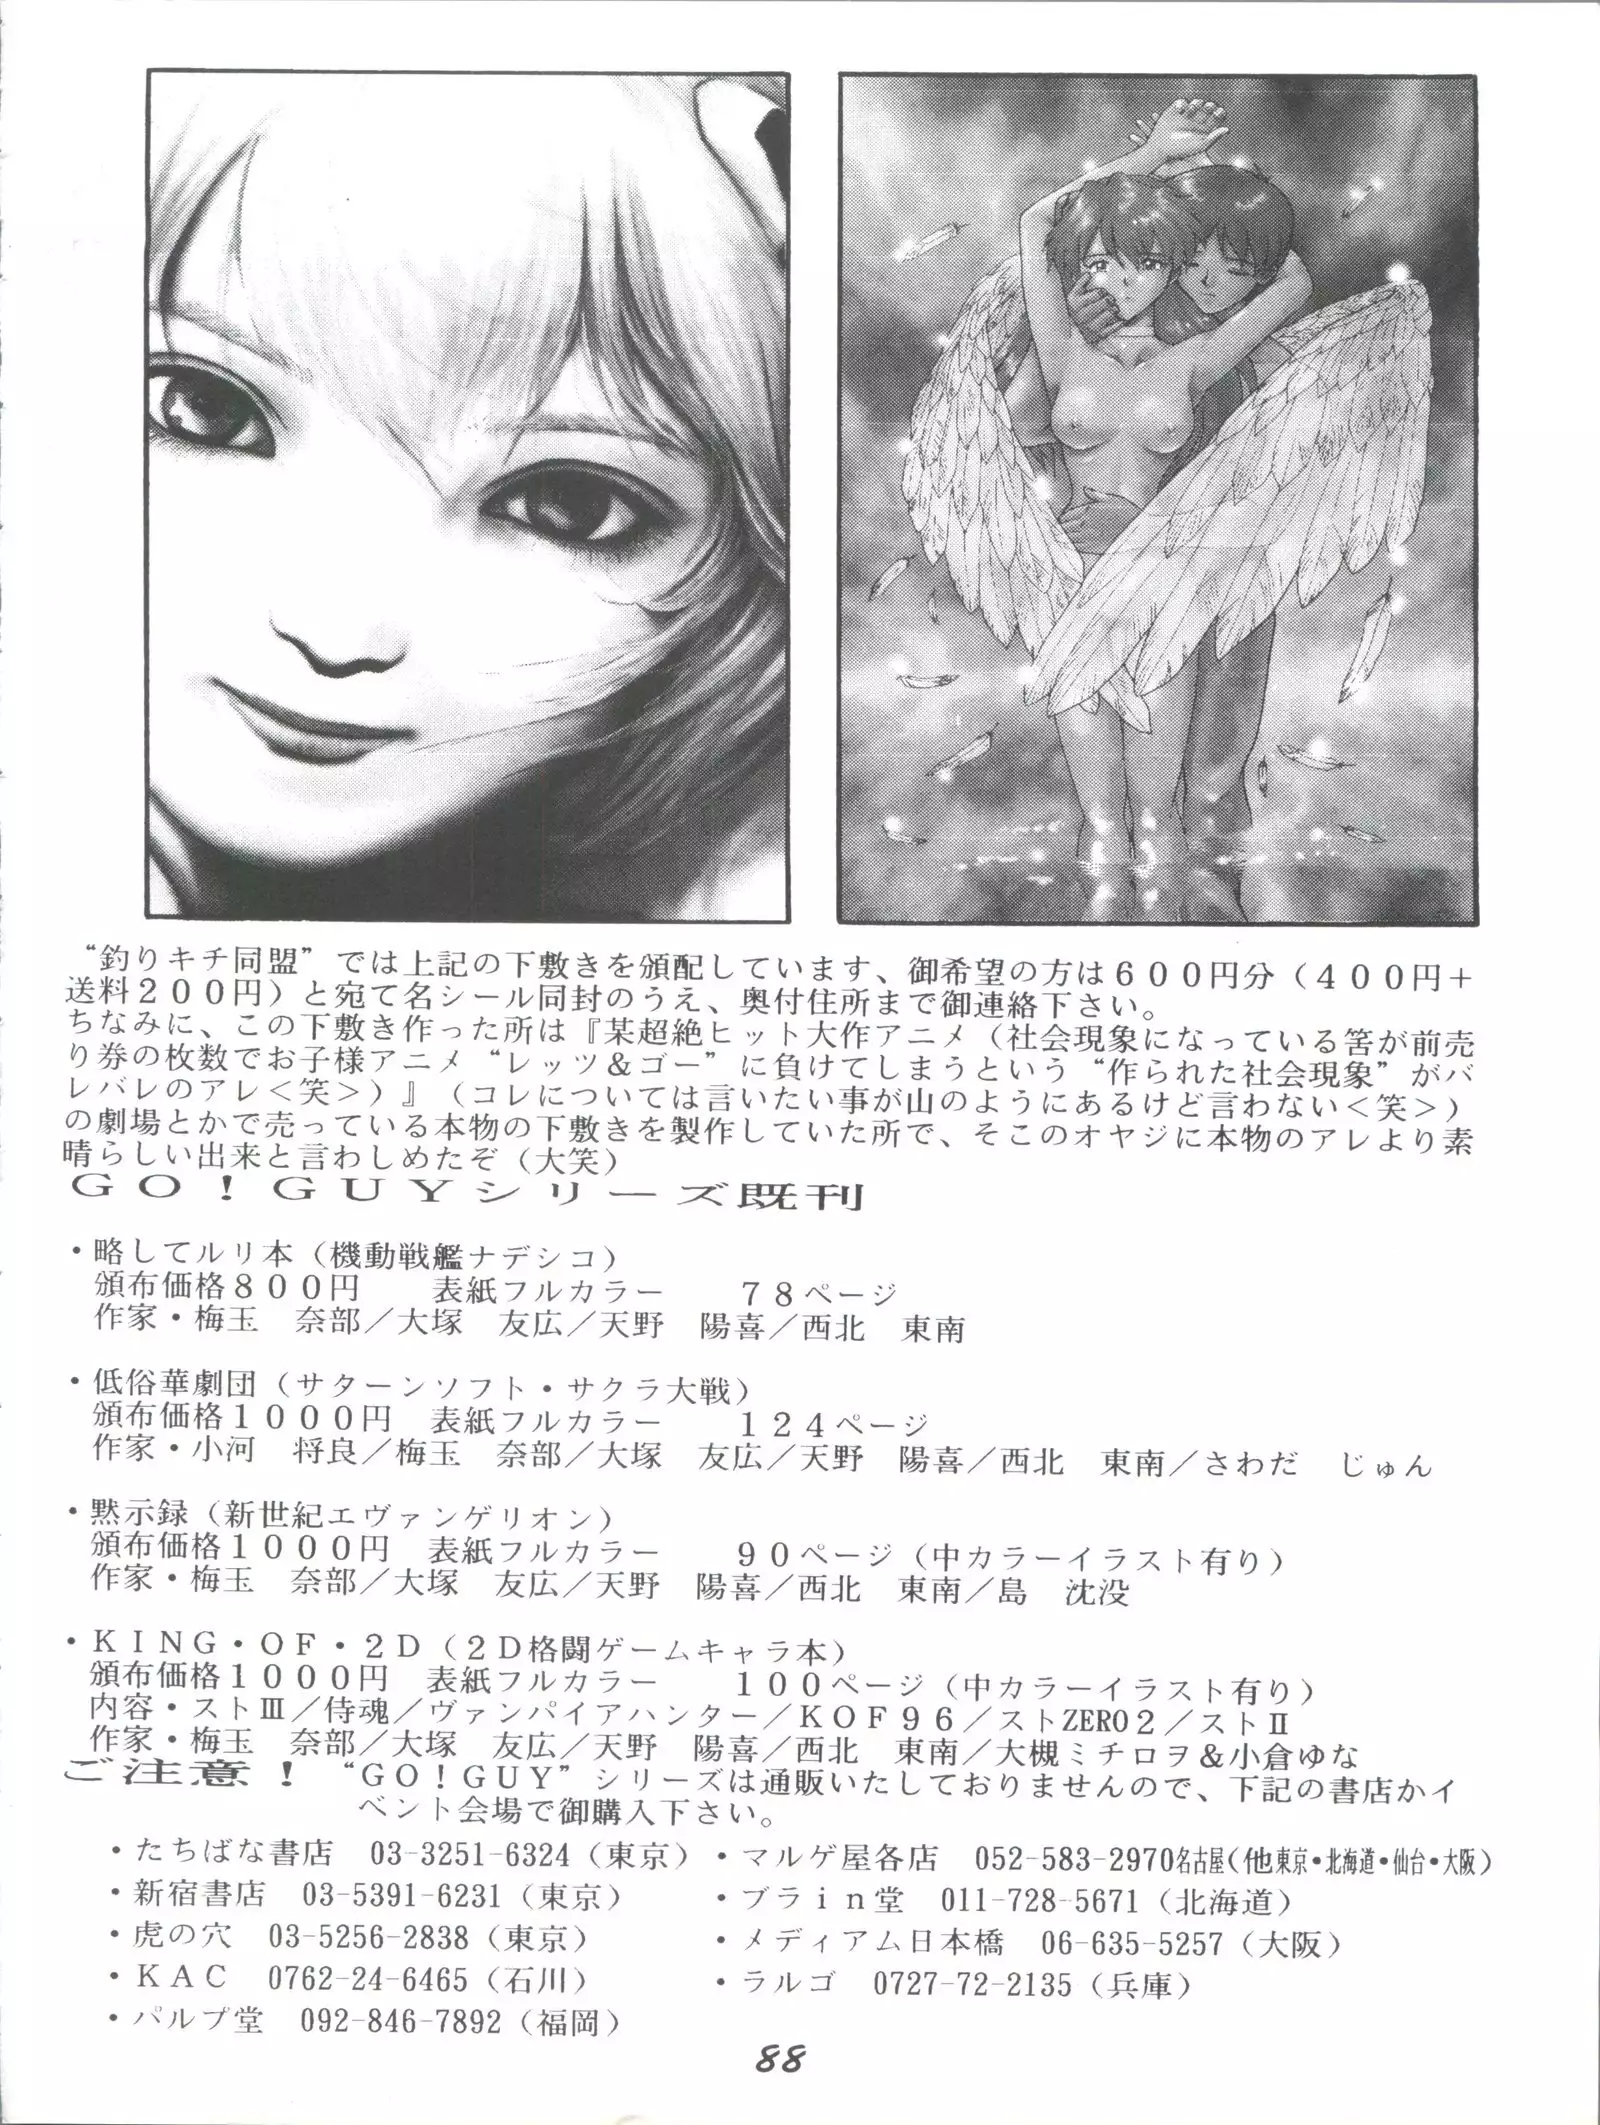 “釣りキチ同盟”では上記の下敷きを頒配しています、御希望の方は６００円分（４００円＋
送料２００円）と宛て名シール同封のうえ、奥付住所まで御連絡下さい。
ちなみに、この下敷き作った所は『某超絶ヒット大作アニメ（社会現象になっている筈が前売
り券の枚数でお子様アニメ“レッツ＆ゴー”に負けてしまうという“作られた社会現象”がバ
レバレのアレ＜笑＞）』（コレについては言いたい事が山のようにあるけど言わない＜笑＞）
の劇場とかで売っている本物の下敷きを製作していた所で、そこのオヤジに本物のアレより素
晴らしい出来と言わしめたぞ（大笑）
ＧＯ！ＧＵＹシリーズ既刊
・略してルリ本（機動戦艦ナデシコ）
頒布価格８００円　　表紙フルカラー　　７８ページ
作家・梅玉　奈部／大塚　友広／天野　陽喜／西北　東南
・低俗華劇団（サターンソフト・サクラ大戦）
頒布価格１０００円　表紙フルカラー　　１２４ページ
作家・小河　将良／梅玉　奈部／大塚　友広／天野　陽喜／西北　東南／さわだ　じゅん
・黙示録（新世紀エヴァンゲリオン）
頒布価格１０００円　表紙フルカラー　　９０ページ（中カラーイラスト有り）
作家・梅玉　奈部／大塚　友広／天野　陽喜／西北　東南／島　沈没
・ＫＩＮＧ・ＯＦ・２Ｄ（２Ｄ格闘ゲームキャラ本）
頒布価格１０００円　表紙フルカラー　　１００ページ（中カラーイラスト有り）
内容・ストⅢ／侍魂／ヴァンパイアハンター／ＫＯＦ９６／ストZERO２／ストⅡ
作家・梅玉　奈部／大塚　友広／天野　陽喜／西北　東南／大槻ミチロヲ＆小倉ゆな
ご注意！“ＧＯ！ＧＵＹ”シリーズは通販いたしておりませんので、下記の書店かイ
ベント会場で御購入下さい。
・たちばな書店　03-3251-6324（東京）・マルゲ屋各店　052-583-2970名古屋（他東京・北海道・仙台・大阪）
・新宿書店　03-5391-6231（東京）　・ブラｉｎ堂　011-728-5671（北海道）
・虎の穴　03-5256-2838（東京）　・メディアム日本橋　06-635-5257（大阪）
・ＫＡＣ　0762-24-6465（石川）　・ラルゴ　0727-72-2135（兵庫）
・パルプ堂　092-846-7892（福岡）
88